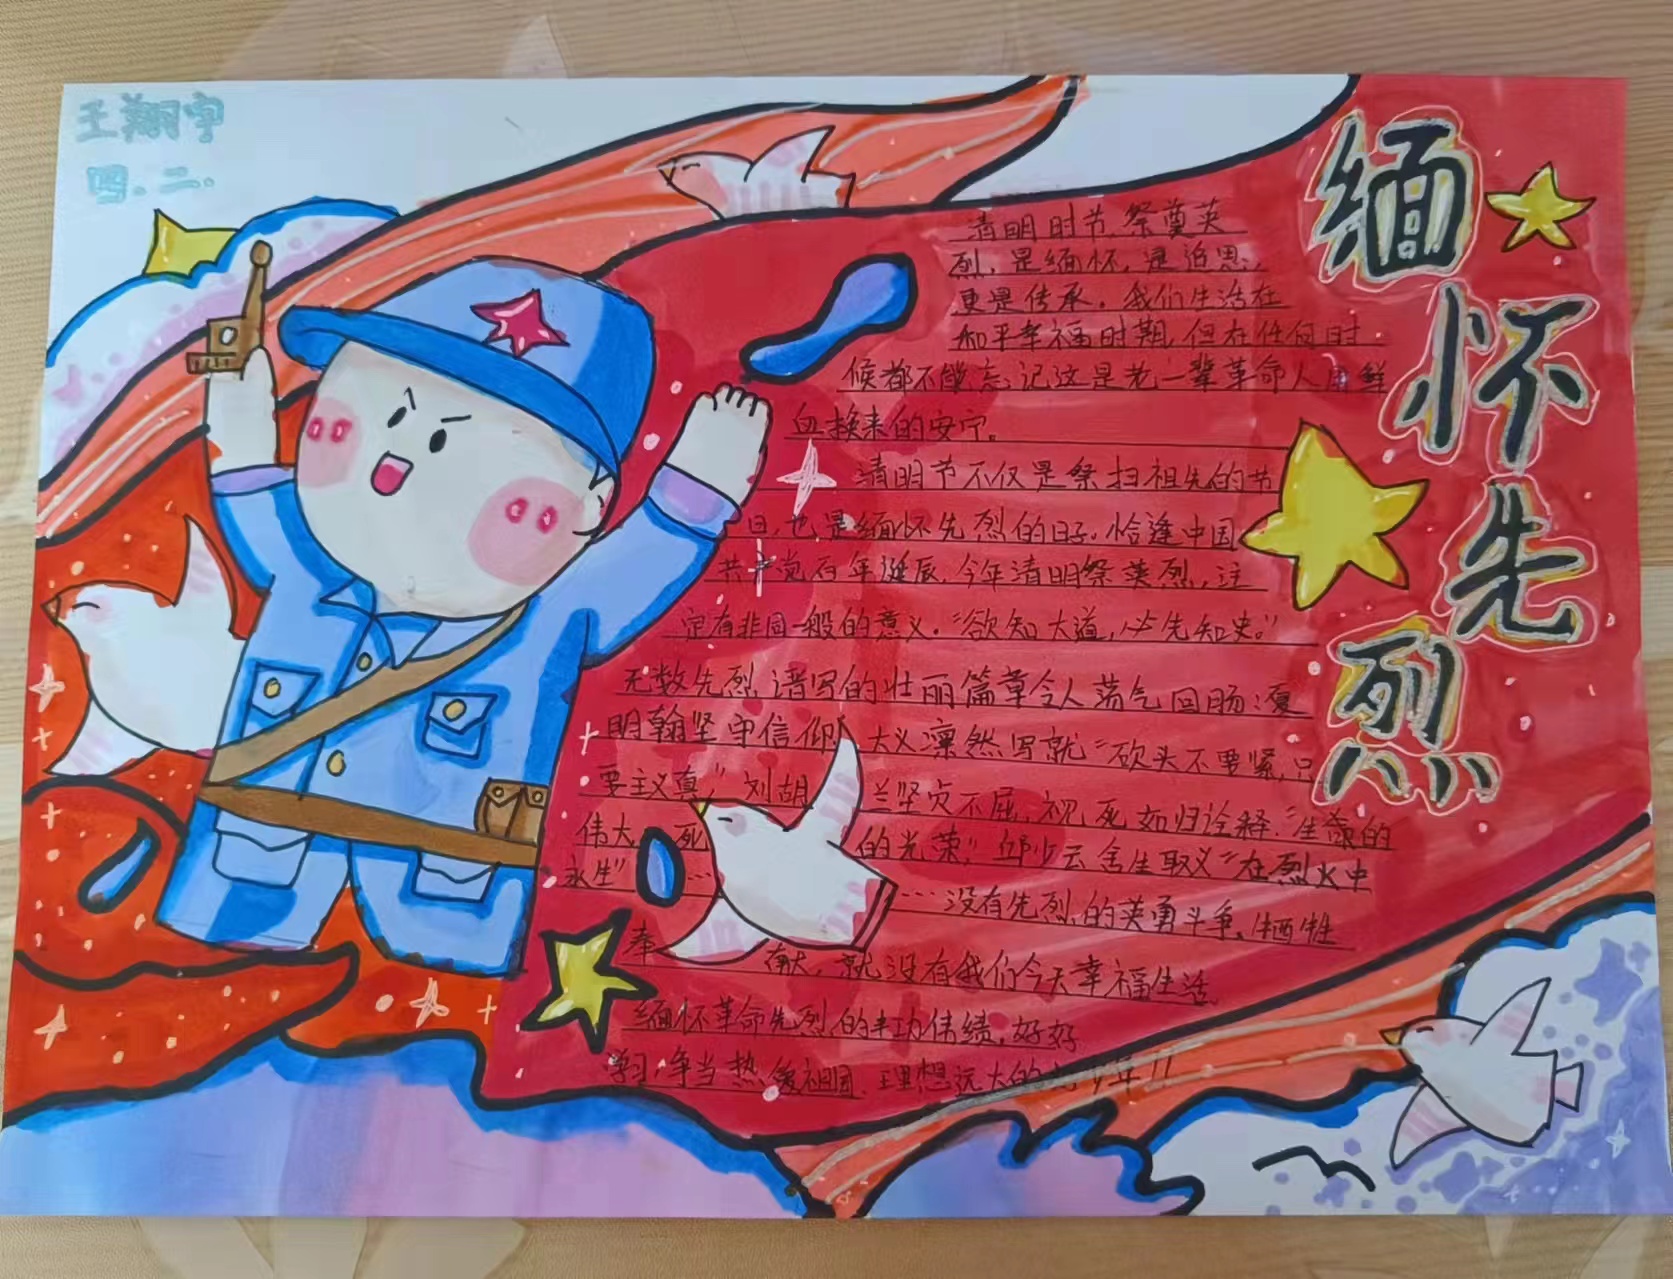 王翔宇
四.二.
缅怀先烈
清明时节祭奠英
烈，是缅怀，是追思，
更是传承。我们生活在
和平幸福时期，但在任何时
候都不能忘记这是老一辈革命人用鲜
血换来的安宁。
清明节不仅是祭扫祖先的节
日，也是缅怀先烈的日子。恰逢中国
共产党百年诞辰，今年清明祭英烈，注
定有非同一般的意义。"欲知大道，必先知史。"
无数先烈谱写的壮丽篇章令人荡气回肠：夏
明翰坚守信仰 大义凛然写就"砍头不要紧，只
要主义真"，刘胡兰坚贞不屈，视死如归诠释"生的
伟大，死的光荣"，邱少云舍生取义"在烈火中
永生"……没有先烈的英勇斗争、牺牲
奉献，就没有我们今天幸福生活
缅怀革命先烈的丰功伟绩，好好
学习，争当热爱祖国、理想远大的好少年!!